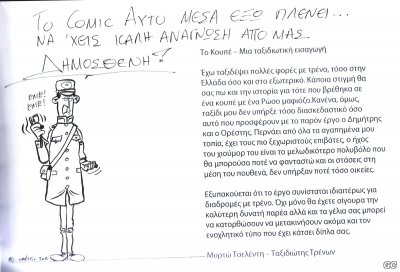 ΤΟ COMIC ΑΥΤΟ ΜΕΣΑ ΕΞΩ ΠΛΕΝΕΙ...
ΝΑ 'ΧΕΙΣ ΚΑΛΗ ΑΝΑΓΝΩΣΗ ΑΠΟ ΜΑΣ
ΔΗΜΟΣΘΕΝΗ!
Το Κουπέ – Μια ταξιδιωτική εισαγωγή
Έχω ταξιδέψει πολλές φορές με τρένα, τόσο στην
Ελλάδα όσο και στο εξωτερικό. Κάποια στιγμή θα
σας πω και την ιστορία για τότε που βρέθηκα σε
ένα κουπέ με ένα Ρώσο μαφιόζο.Κανένα, όμως,
ταξίδι μου δεν υπήρξε τόσο διασκεδαστικό όσο
αυτό που προσφέρουν με το παρόν έργο ο Δημήτρης
και ο Ορέστης. Περνάει από όλα τα αγαπημένα μου
τοπία, έχει τους πιο ξεχωριστούς επιβάτες, ο ήχος
του χιούμορ του είναι το μελωδικότερο πολυβόλο που
θα μπορούσα ποτέ να φανταστώ και οι στάσεις στη
μέση του πουθενά, δεν υπήρξαν ποτέ τόσο οικείες.
Εξυπακούεται ότι το έργο συνίσταται ιδιαιτέρως για
διαδρομές με τρένο. Όχι μόνο θα έχετε σίγουρα την
καλύτερη δυνατή παρέα αλλά και τα γέλια σας μπορεί
να κατορθώσουν να μετακινήσουν ακόμα και τον
ενοχλητικό τύπο που έχει κάτσει δίπλα σας.
Μυρτώ Τσελέντη – Ταξιδιώτης Τρένων
GC